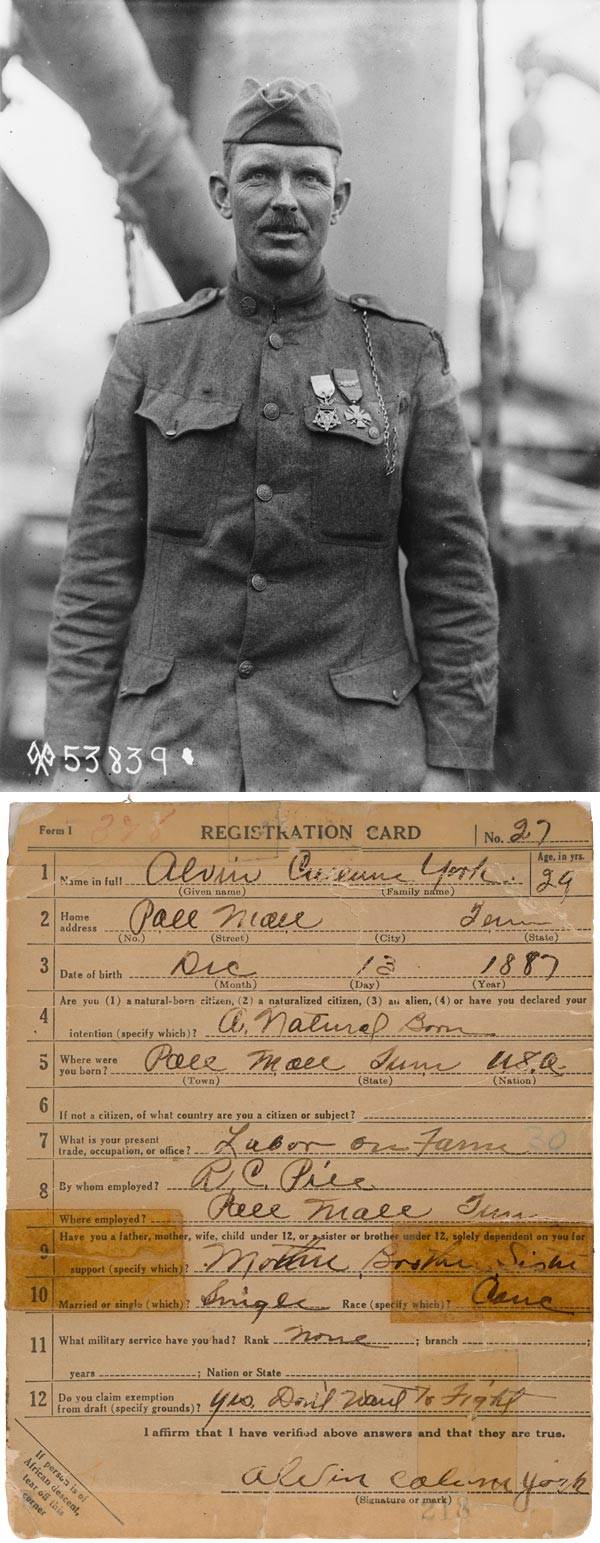 53839
Form 1 328 REGISTRATION CARD No. 27
Age, in yrs.
1 Name in full Alvin York. 29
(Given name) (Family name)
2 Home address Pall Mall Tenn
(No.) (Street) (City) (State)
3 Date of birth Dec 13 1887
(Month) (Day) (Year)
Are you (1) a natural-born citizen, (2) a naturalized citizen, (3) an alien, (4) or have you declared your
4 intention (specify which)? A. Natural Born
5 Where were you born? Pall Mall Tenn U.S.A.
(Town) (State) (Nation)
6 If not a citizen, of what country are you a citizen or subject?
7 What is your present trade, occupation, or office? Labor on Farm 30
8 By whom employed? R. C. Pile
Where employed? Pall Mall Tenn
Have you a father, mother, wife, child under 12, or a sister or brother under 12, solely dependent on you for
9 support (specify which)? Mother, Brother, Sister
10 Married or single (which)? Single Race (specify which)?
11 What military service have you had? Rank none ; branch ;
years ; Nation or State
12 Do you claim exemption from draft (specify grounds)? yes. Don't Want To Fight
I affirm that I have verified above answers and that they are true.
Alvin York
(Signature or mark)
If person is of
African descent,
tear off this
corner